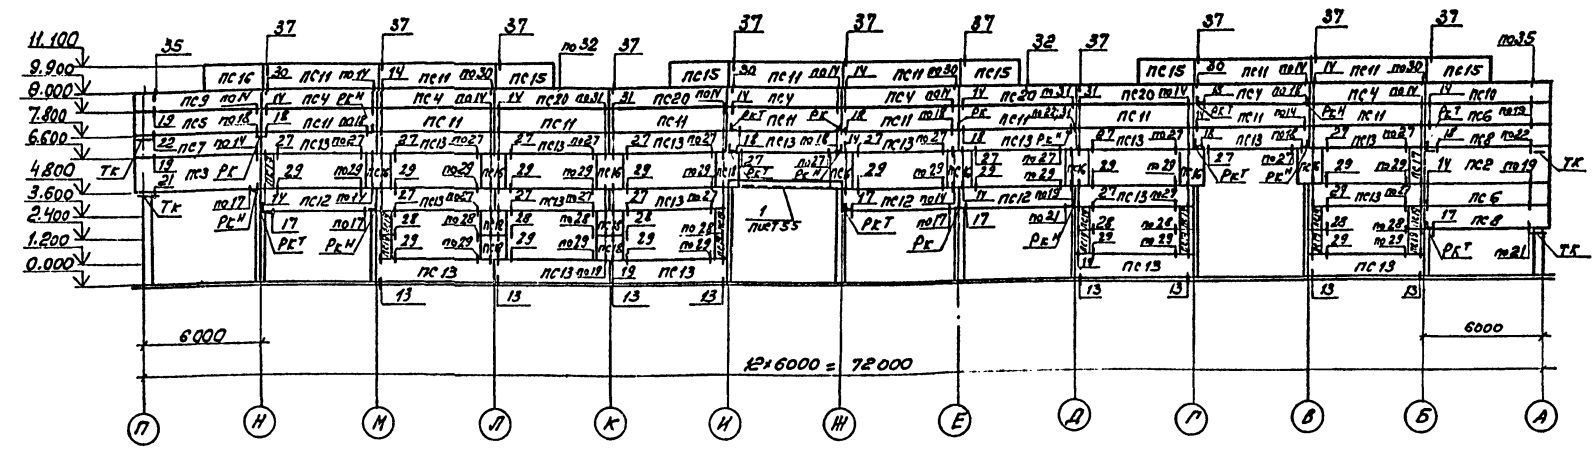 37 37 37 37 37 37 37 37 37 37 37
11.100 35 по32 32 по35
9.900 пс16 30 пс11 по14 14 пс11 по30 пс15 пс15 30 пс11 по14 14 пс11 по30 пс15 пс15 30 пс11 по14 14 пс11 по30 пс15
8.000 пс9 по14 14 пс4 РКН пс4 по14 14 пс20 по31 31 пс20 по14 14 пс4 пс4 по14 14 пс20 по31 31 пс20 по14 пс4 по18 пс4 по14 14 пс10
7.800 19 пс5 по18 18 пс11 по18 пс11 пс11 пс11 РКТ пс11 РК 18 пс11 по18 РК пс11 пс11 РКТ пс11 по14 РКН пс11 РКТ пс6 по19
6.600 22 пс7 по14 27 пс13 по27 27 пс13 по27 27 пс13 по27 27 пс13 по27 18 пс13 по18 14,27 пс13 по27 18 пс13 РКН 27 пс13 по27 18 пс13 по18 27 пс13 по27 18 пс8 по22
4.800 ТК 19 21 пс3 РК 29 по29 29 по29 29 по29 29 по29 27 РКТ по27 РКН 29 по29 27 29 по27 по29 29 по29 27 РКТ по27 РКН 29 по29 14 пс2 по19 ТК
3.600 ТК по17 РКН 14 пс12 по14 27 пс13 по27 27 пс13 по27 27 пс13 по27 17 пс12 по14 14 пс12 по19 27 пс13 по29 27 пс13 по27 пс6
2.400 17 РКТ по17 РКН 28 по28 28 по28 28 по28 1 лист 55 РКТ по17 РК 17 по21 РКН 28 по28 28 по28 17 пс8
1.200 29 по29 29 по29 29 по29 29 по29 29 по29 РКТ по21 ТК
0.000 пс13 пс13 по19 19 пс13 19 пс13 пс13
13 13 13 13 13 13 13 13
6000 6000
12×6000 = 72000
П Н М Л К И Ж Е Д Г В Б А